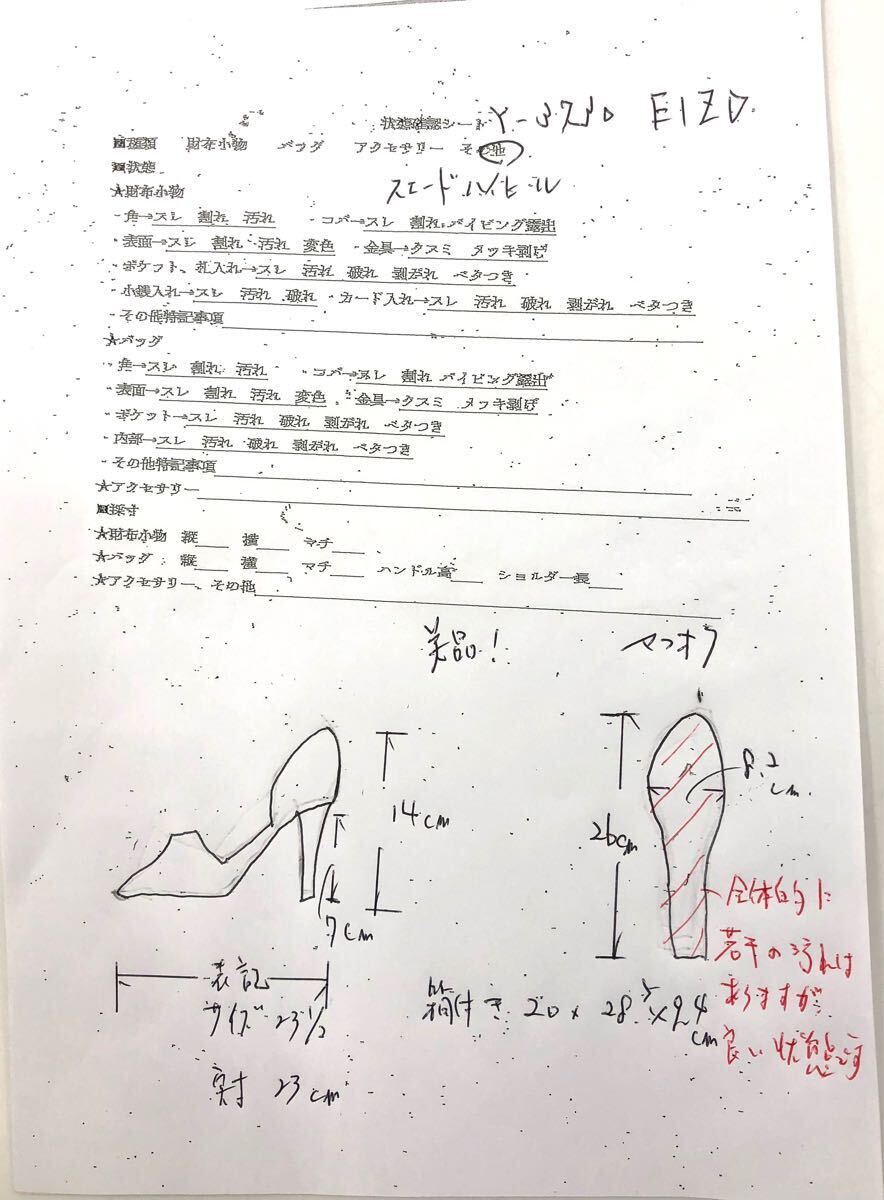 状態確認シート Y-3730 EIZO
■種類 財布小物 バッグ アクセサリー その他
■状態 スエードハイヒール
★財布小物
・角→スレ 割れ 汚れ ・コバ→スレ 割れ パイピング露出
・表面→スレ 割れ 汚れ 変色 ・金具→クスミ メッキ剥げ
・ポケット、札入れ→スレ 汚れ 破れ 剥がれ ベタつき
・小銭入れ→スレ 汚れ 破れ ・カード入れ→スレ 汚れ 破れ 剥がれ ベタつき
・その他特記事項
★バッグ
・角→スレ 割れ 汚れ ・コバ→スレ 割れ パイピング露出
・表面→スレ 割れ 汚れ 変色 ・金具→クスミ メッキ剥げ
・ポケット→スレ 汚れ 破れ 剥がれ ベタつき
・内部→スレ 汚れ 破れ 剥がれ ベタつき
・その他特記事項
★アクセサリー
■採寸
★財布小物 縦 横 マチ
★バッグ 縦 横 マチ ハンドル高 ショルダー長
★アクセサリー、その他
美品! ヤフオク
14cm
7cm
表記
サイズ 23 1/2
実寸 23cm
26cm
8.2
cm
全体的に
若干の汚れは
ありますが
良い状態です
箱付き 20 × 28.5 × 9.4
cm